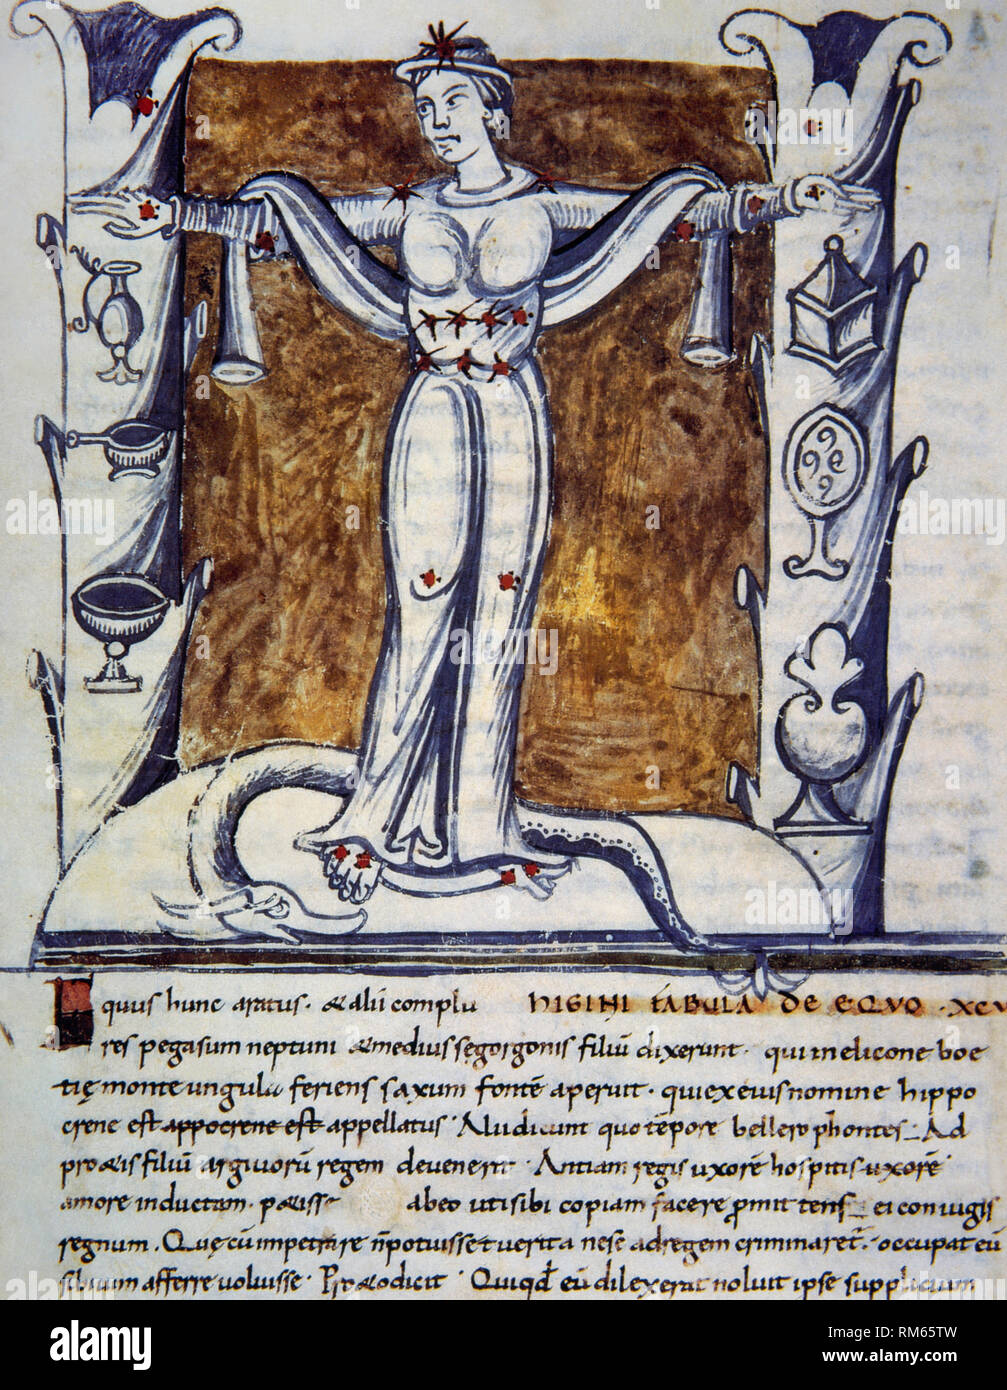 Equus hunc aratus. & alii complu HIGINI TABULA DE EQUO .XCV
res pegasum neptuni & medius se gorgonis filiū dixerunt. qui in elicone boe
tię monte ungula feriens saxum fontē aperuit. qui ex eius nomine hippo
crene est appocrene est appellatus. Alii dicunt quo tēpore bellerophontes. Ad
pro&is filiū argiuorū regem devenerit. Antiam regis uxorē hospitis uxorē
amore inductam. p&isse ab eo uti sibi copiam facere promittens ei coniugis
regnum. Quę cū impetrare n potuisset uerita ne se ad regem criminaret. occupat eū
sibi uim afferre uoluisse. Pro&o dicit. Quiqd eū dilexerat noluit ipse supplicium
alamy
a
alamy stock photo
RM65TW
www.alamy.com